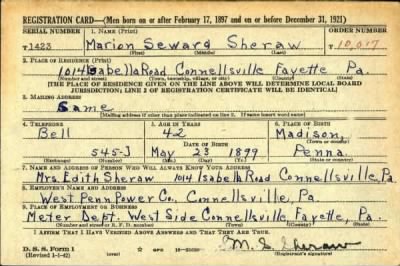 REGISTRATION CARD—(Men born on or after February 17, 1897 and on or before December 31, 1921)
SERIAL NUMBER 1. NAME (Print) ORDER NUMBER
T1423 Marion Seward Sheraw T10,017
(First) (Middle) (Last)
2. PLACE OF RESIDENCE (Print)
1014 Isabella Road Connellsville Fayette Pa.
(Number and street) (Town, township, village, or city) (County) (State)
[THE PLACE OF RESIDENCE GIVEN ON THE LINE ABOVE WILL DETERMINE LOCAL BOARD
JURISDICTION; LINE 2 OF REGISTRATION CERTIFICATE WILL BE IDENTICAL]
3. MAILING ADDRESS
Same
[Mailing address if other than place indicated on line 2. If same insert word same]
4. TELEPHONE 5. AGE IN YEARS 6. PLACE OF BIRTH
Bell 42 Madison,
DATE OF BIRTH (Town or county)
545-J May 23 1899 Penna.
(Exchange) (Number) (Mo.) (Day) (Yr.) (State or country)
7. NAME AND ADDRESS OF PERSON WHO WILL ALWAYS KNOW YOUR ADDRESS
Mrs. Edith Sheraw 1014 Isabella Road Connellsville, Pa.
8. EMPLOYER'S NAME AND ADDRESS
West Penn Power Co., Connellsville, Pa.
9. PLACE OF EMPLOYMENT OR BUSINESS
Meter Dept. West Side Connellsville, Fayette, Pa.
(Number and street or R. F. D. number) (Town) (County) (State)
I AFFIRM THAT I HAVE VERIFIED ABOVE ANSWERS AND THAT THEY ARE TRUE.
D. S. S. Form 1
(Revised 1-1-42) GPO M. S. Sheraw
(Registrant's signature)